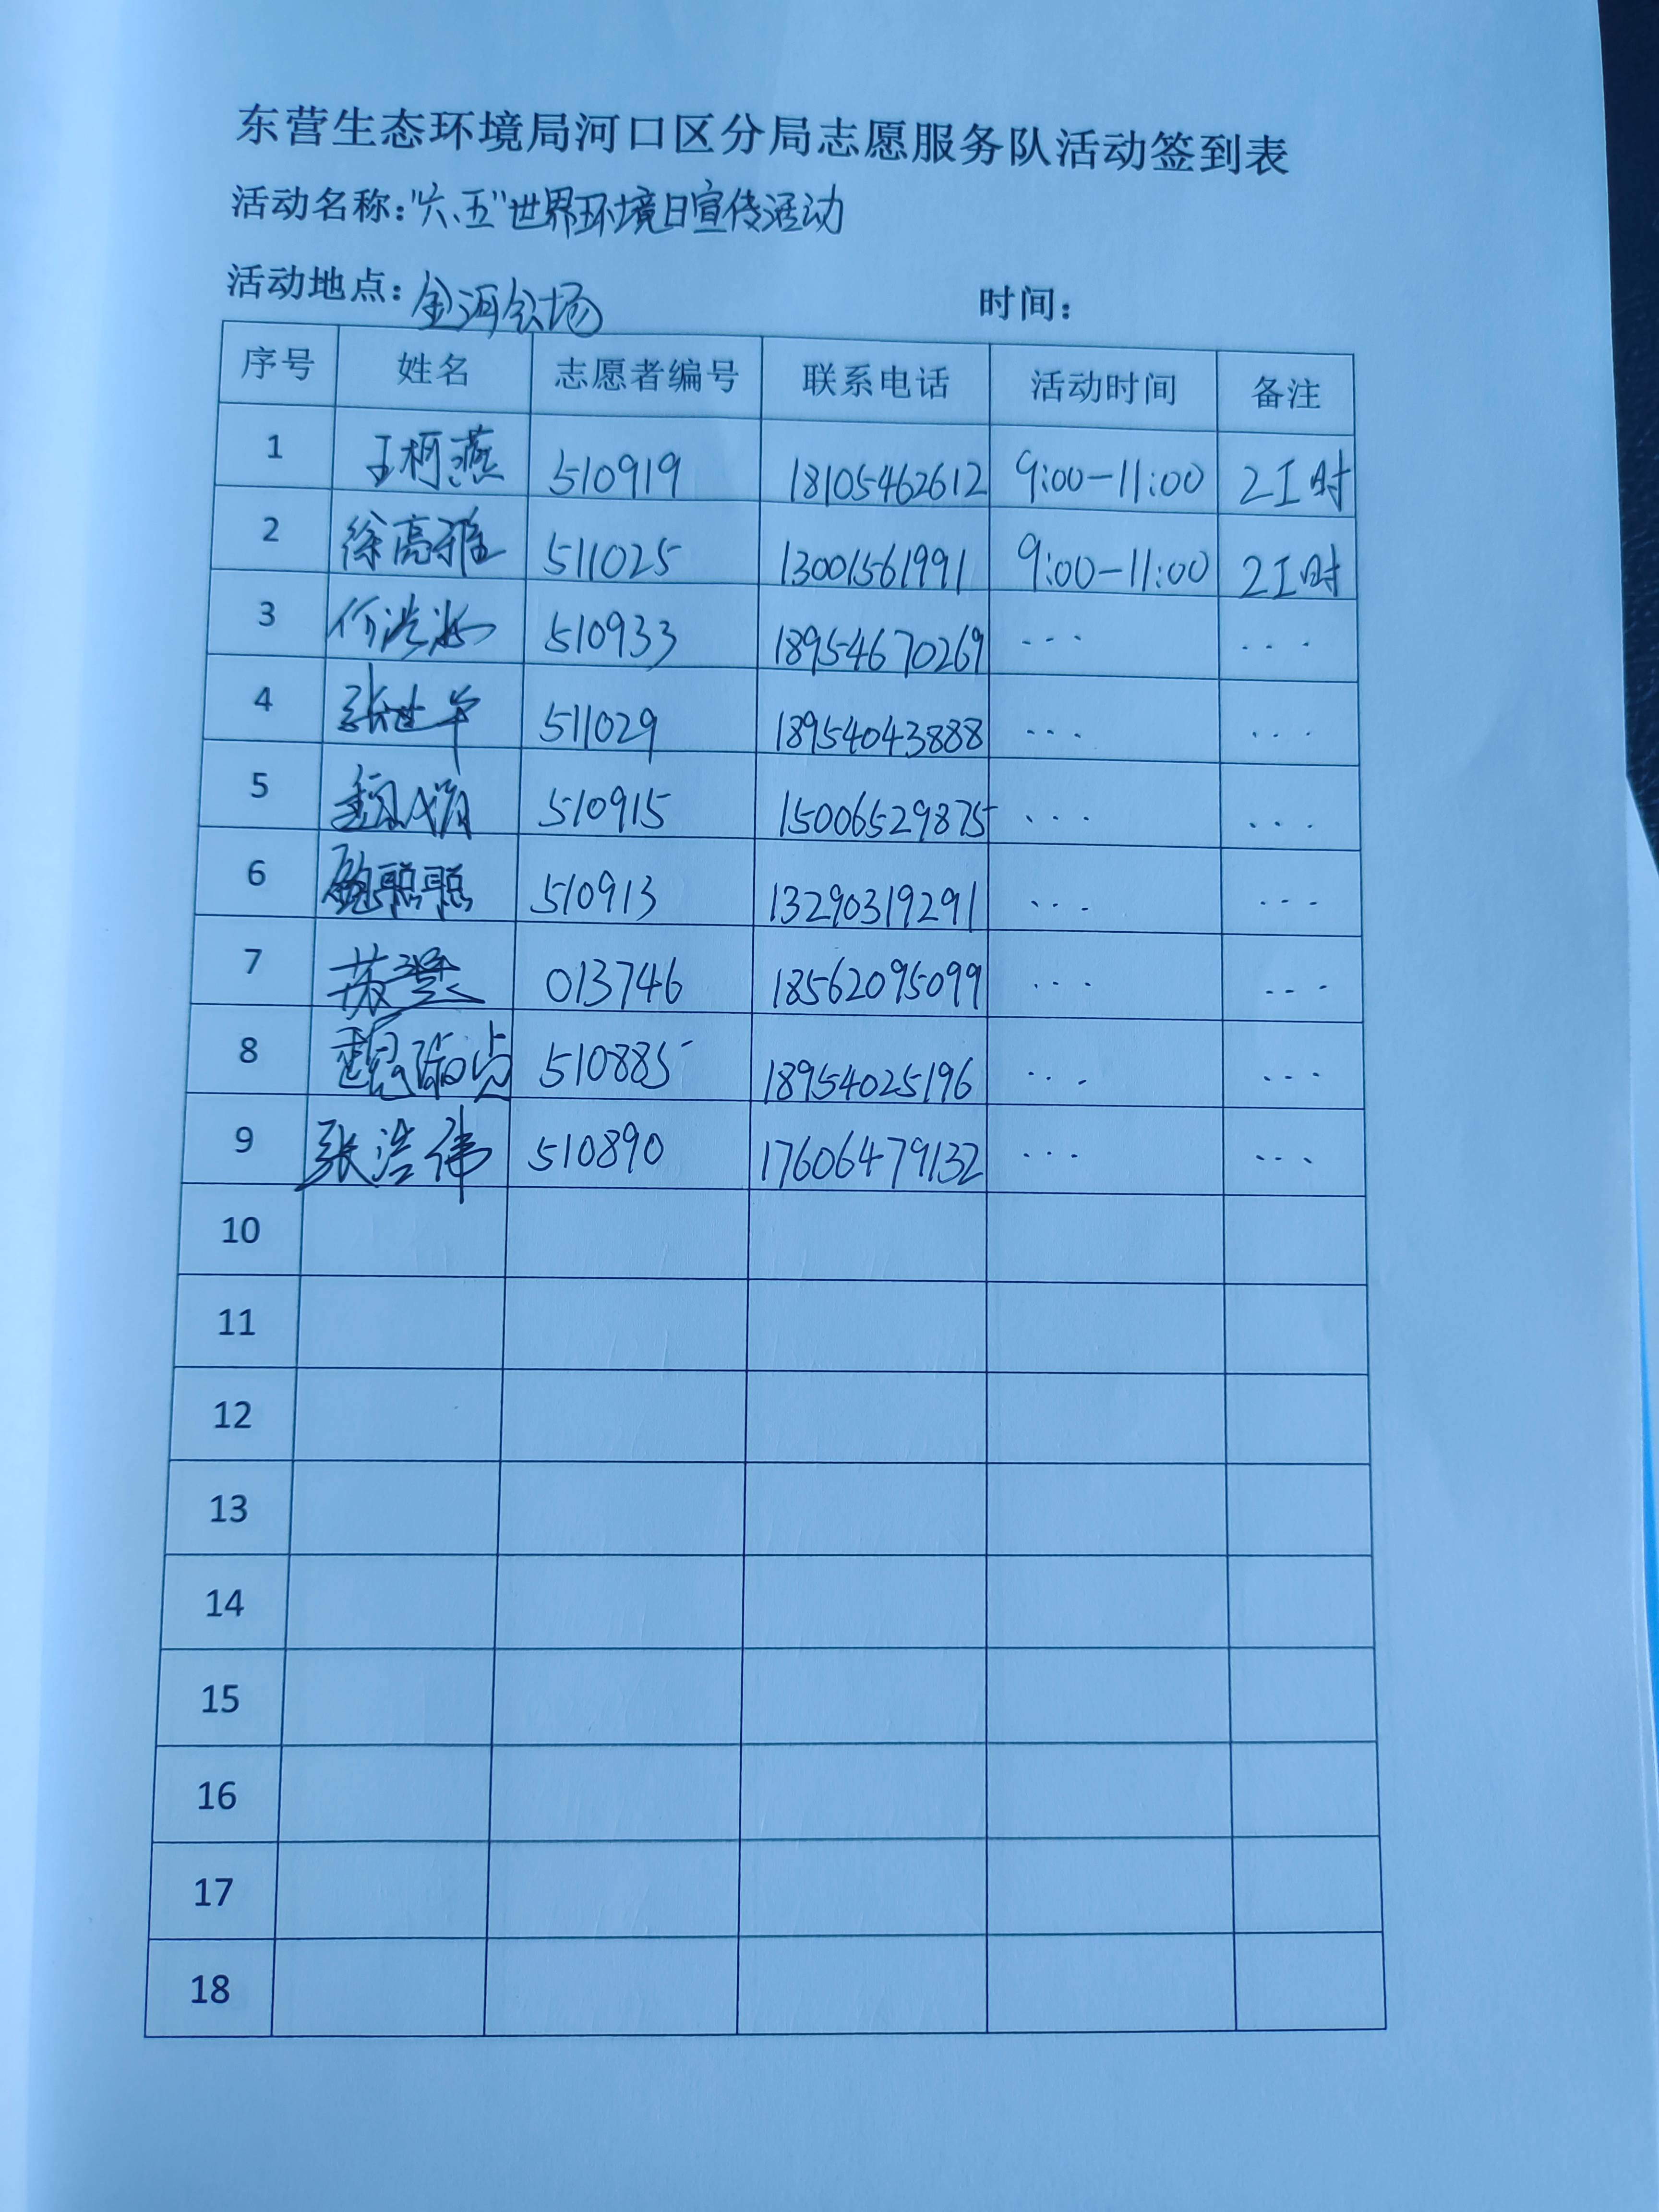 东营生态环境局河口区分局志愿服务队活动签到表
活动名称:"六.五"世界环境日宣传活动
活动地点:金河会场 时间:
序号 姓名 志愿者编号 联系电话 活动时间 备注
1 王柯燕 510919 18105462612 9:00-11:00 2工时
2 徐高雅 511025 13001561991 9:00-11:00 2工时
3 510933 18954670269 ... ...
4 张世军 511029 18954043888 ... ...
5 510915 15006529875 ... ...
6 鲍聪聪 510913 13290319291 ... ...
7 苏 013746 18562095099 ... ...
8 魏 510885 18954025196 ... ...
9 张浩伟 510890 17606479132 ... ...
10
11
12
13
14
15
16
17
18